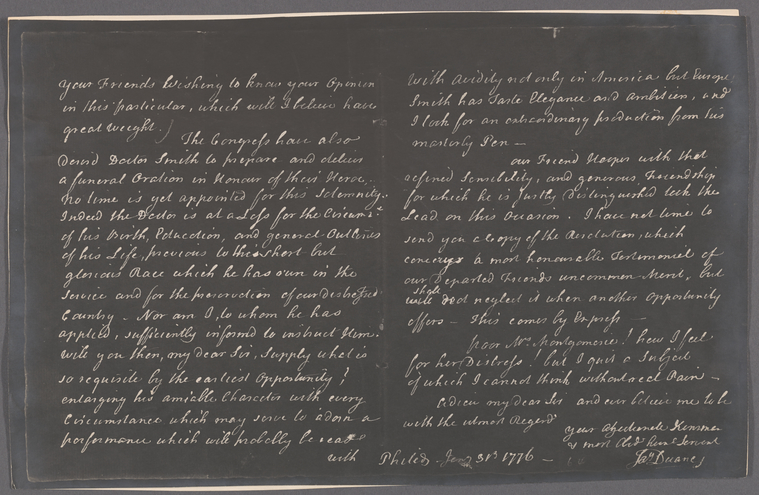 your Friends Wishing to know your Opinion
in this particular, which will I believe have
great weight.)
The Congress have also
Desird Doctor Smith to prepare and deliver
a funeral Oration in Honour of their Heroe.
No time is yet appointed for this Solemnity.
Indeed the Doctor is at a Loss for the Circums.
of his Birth, Education, and general Outlines
of his Life, previous to this short but
glorious Race which he has run in the
Service and for the preservation of our distressed
Country - Nor am I, to whom he has
applied, sufficiently informd to instruct Him.
Will you then, my dear Sir, supply what is
so requisite by the earliest Opportunity?
enlarging his amiable Character with every
Circumstance which may serve to adorn a
performance which will probably be read
with
with avidity not only in America but Europe
Smith has Taste Elegance and Ambition, and
I look for an extraordinary production from his
masterly Pen -
our Friend Hooper with that
refined Sensibility, and generous Friendship
for which he is justly Distinguished took the
Lead on this Occasion. I have not time to
send you a Copy of the Resolution, which
conveys a most honourable Testimonial of
our Departed Friends uncommon Merit, but
shall
will not neglect it when another Opportunity
offers - This comes by Express -
poor Mrs. Montgomerie! how I feel
for her Distress! but I quit a Subject
of which I cannot think without real Pain -
Adieu my dear Sir and ever believe me to be
with the utmost Regard
your affectionate Kinsman
& most Obed. hum. Servant
Jas. Duane
Philad. Jany 31st 1776 -